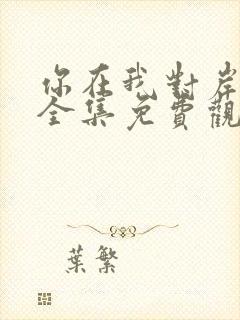 你在我對岸
全集免費觀
葉繁